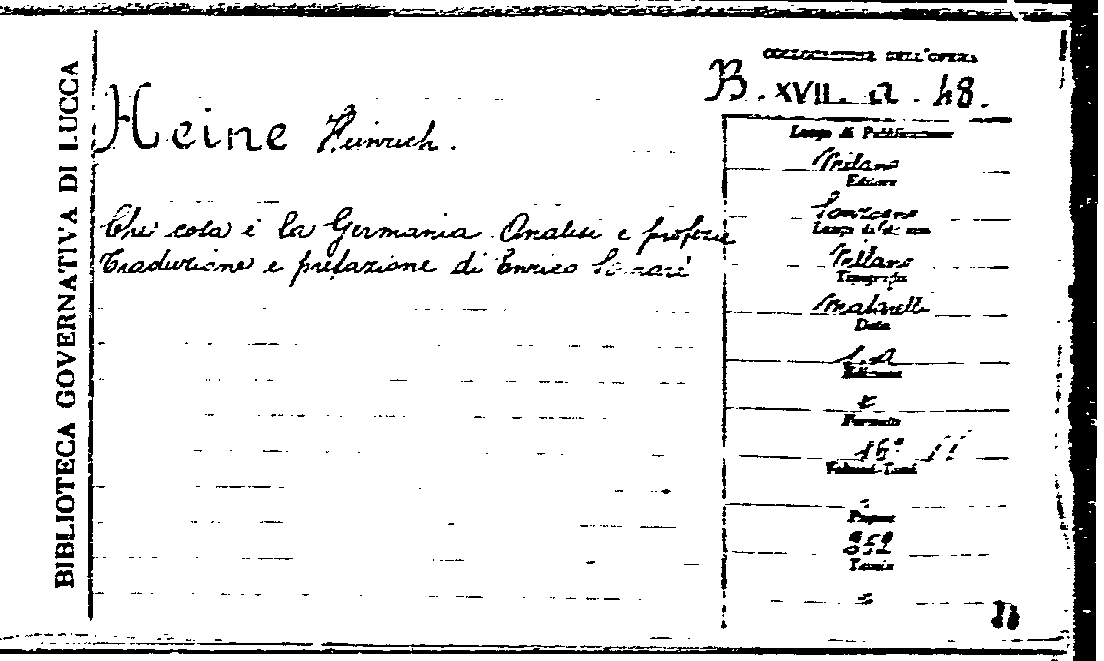 BIBLIOTECA GOVERNATIVA DI LUCCA
COLLOCAZIONE DELL'OPERA
B. XVII. a. 48.
Heine Heinrich.
Che cosa è la Germania. Analisi e profezie
Traduzione e prefazione di Enrico
Luogo di Pubblicazione
Milano
Editore
Sonzogno
Milano
Tipografia
Matarelli
Data
s.a
Edizione
Formato
16°
Volumi-Tomi
Pagine
352
Tavole